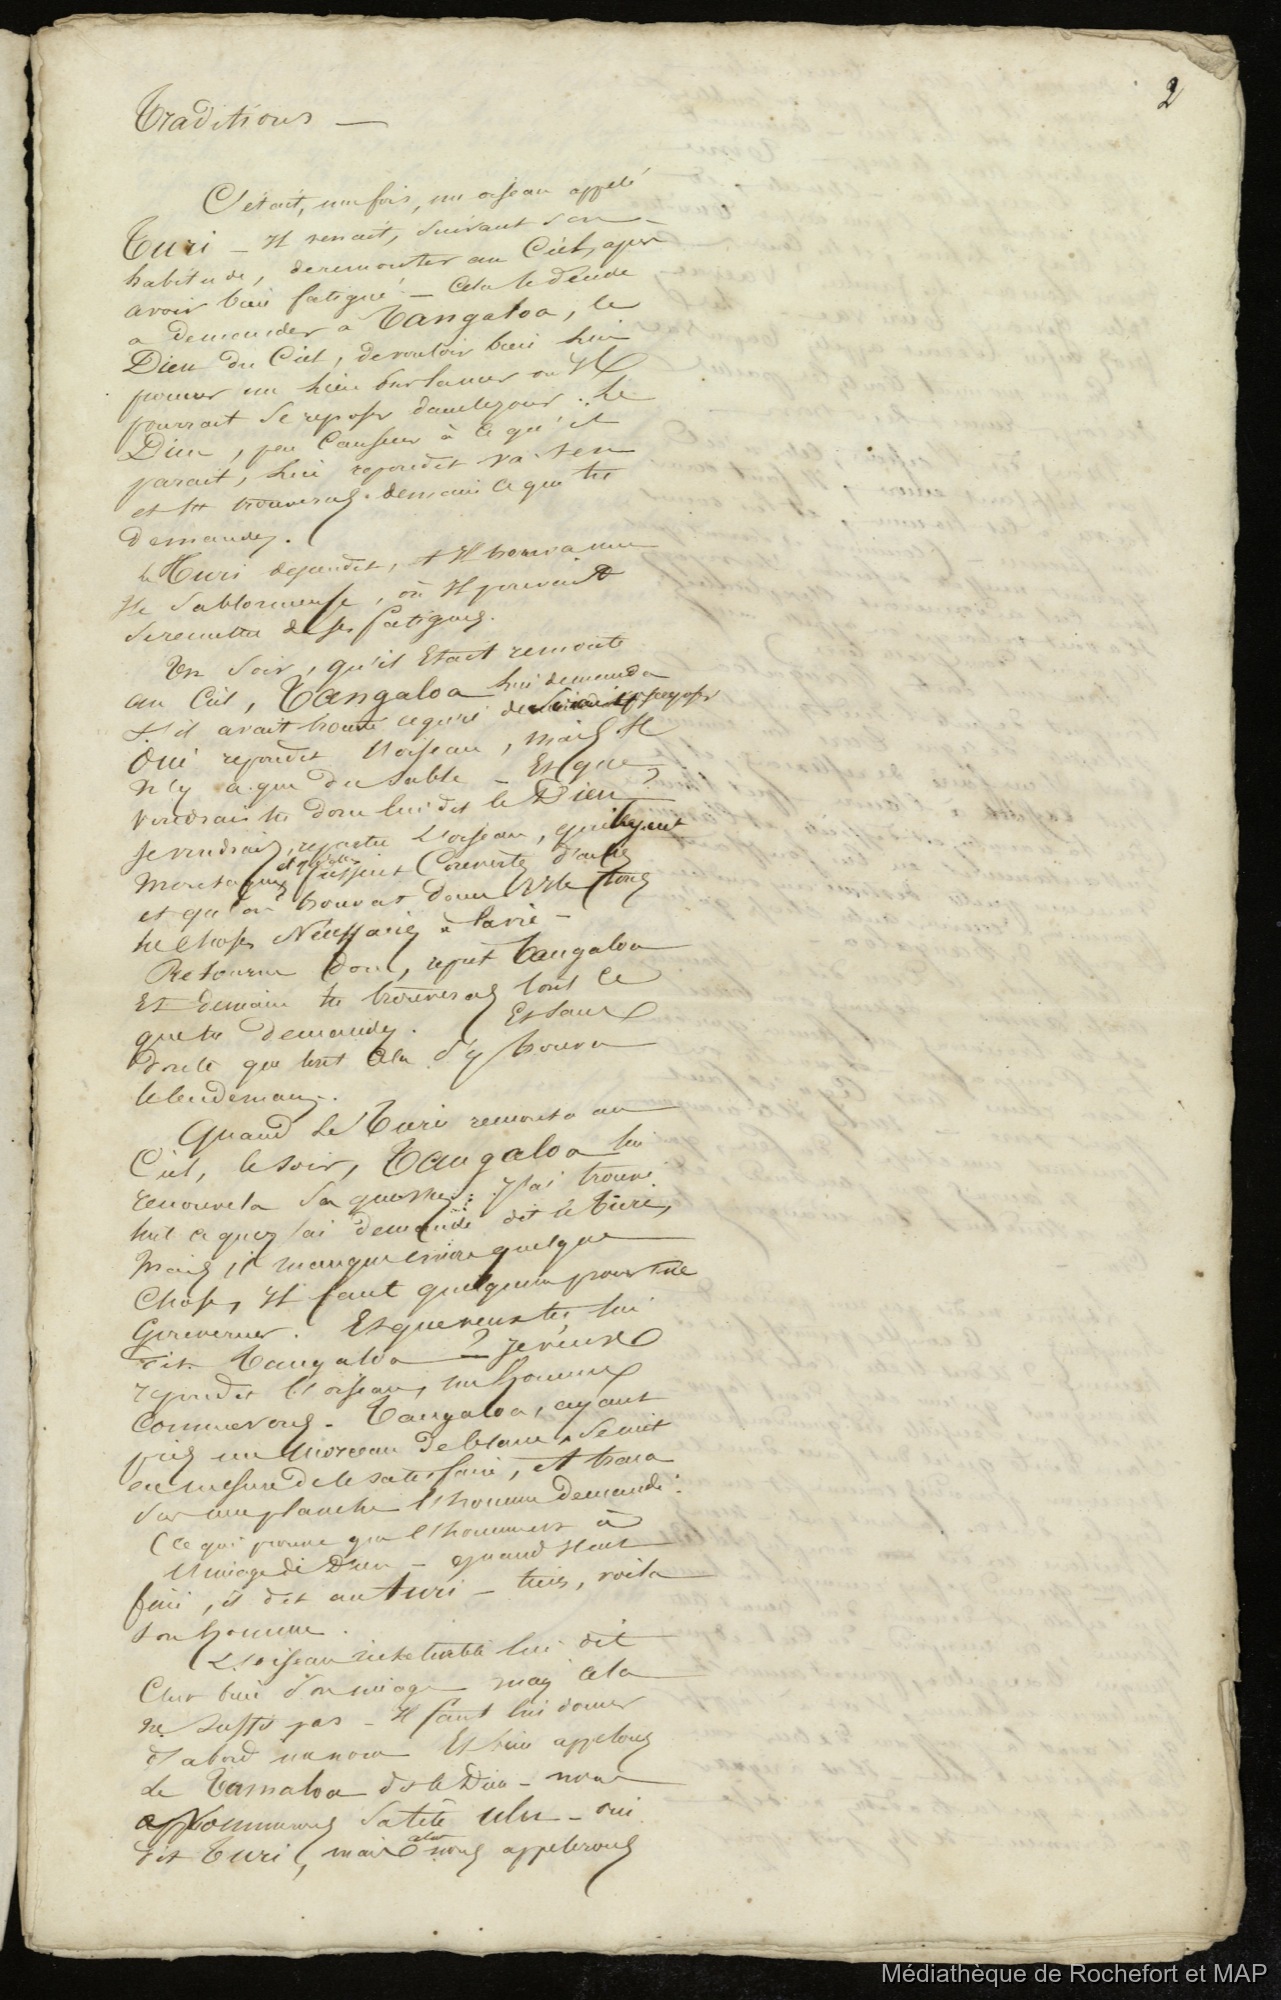 2
Traditions —
C'était, une fois, un oiseau appelé
Turi — Il venait, suivant son
habitude, de remonter au Ciel, après
avoir bien fatigué — Cela le décide
a demander a Tangaloa, le
Dieu du Ciel, de vouloir bien lui
donner un lieu sur la mer où Il
pourrait se reposer dans le jour. Le
Dieu, peu causeur à ce qu'il
parait, lui repondit va-t-en
et tu trouveras demain ce que tu
demandes.
le Turi descendit, et Il trouva une
Ile sablonneuse, où Il pouvait
se remettre de ses fatigues.
Un soir, qu'il était remonté
au Ciel, Tangaloa lui demanda
s'il avait trouvé reposer
Oui repondit l'oiseau, mais Il
n'y a que du sable — Est que
voudrais tu donc lui dit le Dieu,
Je voudrais, repartit l'oiseau, qu'il y eut
montagnes et qu'elles fussent couvertes d'arbres
et qu'on trouvat dans l'Ile toutes
les choses Nécessaires à la vie —
Retourne donc, reprit Tangaloa
Et demain tu trouveras tout ce
que tu demandes. Et sans
doute que tout cela s'y trouva
le lendemain.
Quand le Turi remonta au
Ciel, le soir, Tangaloa lui
renouvela sa question: J'ai trouvé
tout ce que j'ai demandé dit le Turi,
Mais il manque encore quelque
Chose, Il faut quelqu'un pour Me
Gouverner. Et que veux tu, lui
dit Tangaloa ? Je veux
repondit l'oiseau, un homme
Comme vous. Tangaloa, ayant
pris un morceau de blanc, se mit
en mesure de le satisfaire, et traça
sur une planche l'homme demandé.
(ce qui prouve que l'homme est à
l'image de Dieu — quand Il eut
fini, il dit au turi — tiens, voila
ton homme.
L'oiseau lui dit
C'est bien son image mais cela
ne suffit pas — Il faut lui donner
d'abord un nom Eh bien appelons
le Tamaloa dit le Dieu — nous
nommerons sa tête ulu — oui
dit Turi, mais alors nous appelerons
Médiathèque de Rochefort et MAP